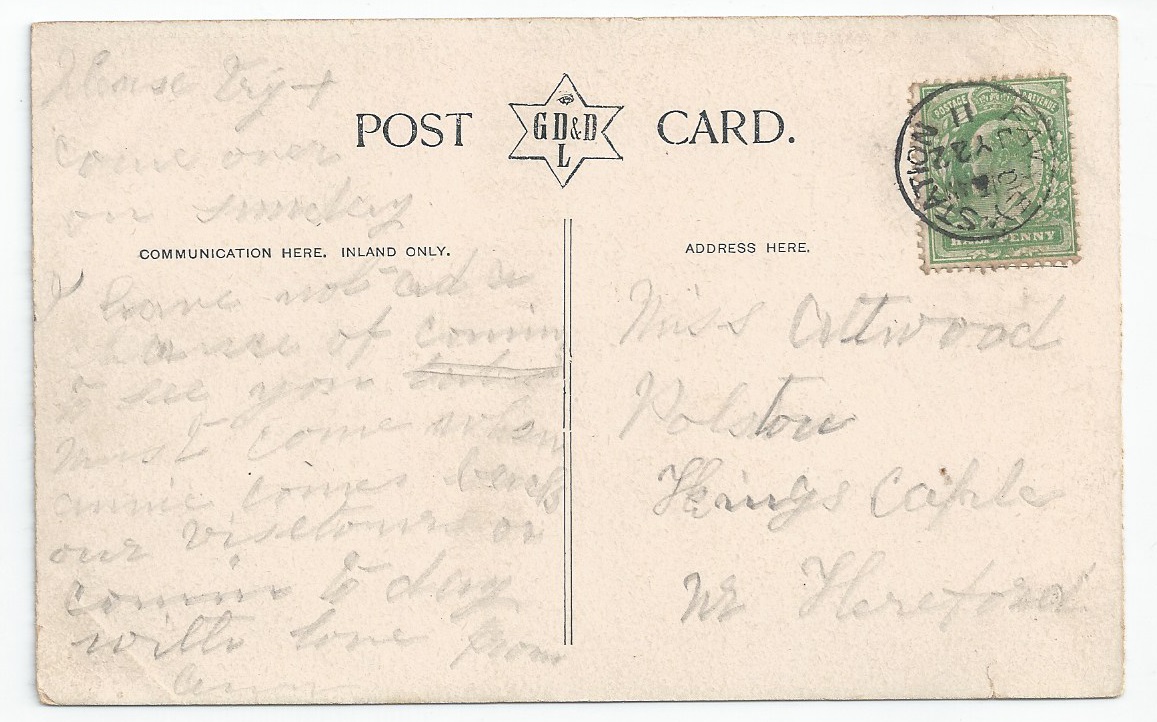 Please try +
come over
on sunday
POST GD&D L CARD.
COMMUNICATION HERE. INLAND ONLY.
I have not ad a
chance of comin
to see you
must come when
annie comes back
our visetours
comin to day
with love from
ADDRESS HERE.
Miss Attwood
Polston
Kings Caple
nr Hereford
POSTAGE REVENUE
HALFPENNY
STATION
11
22